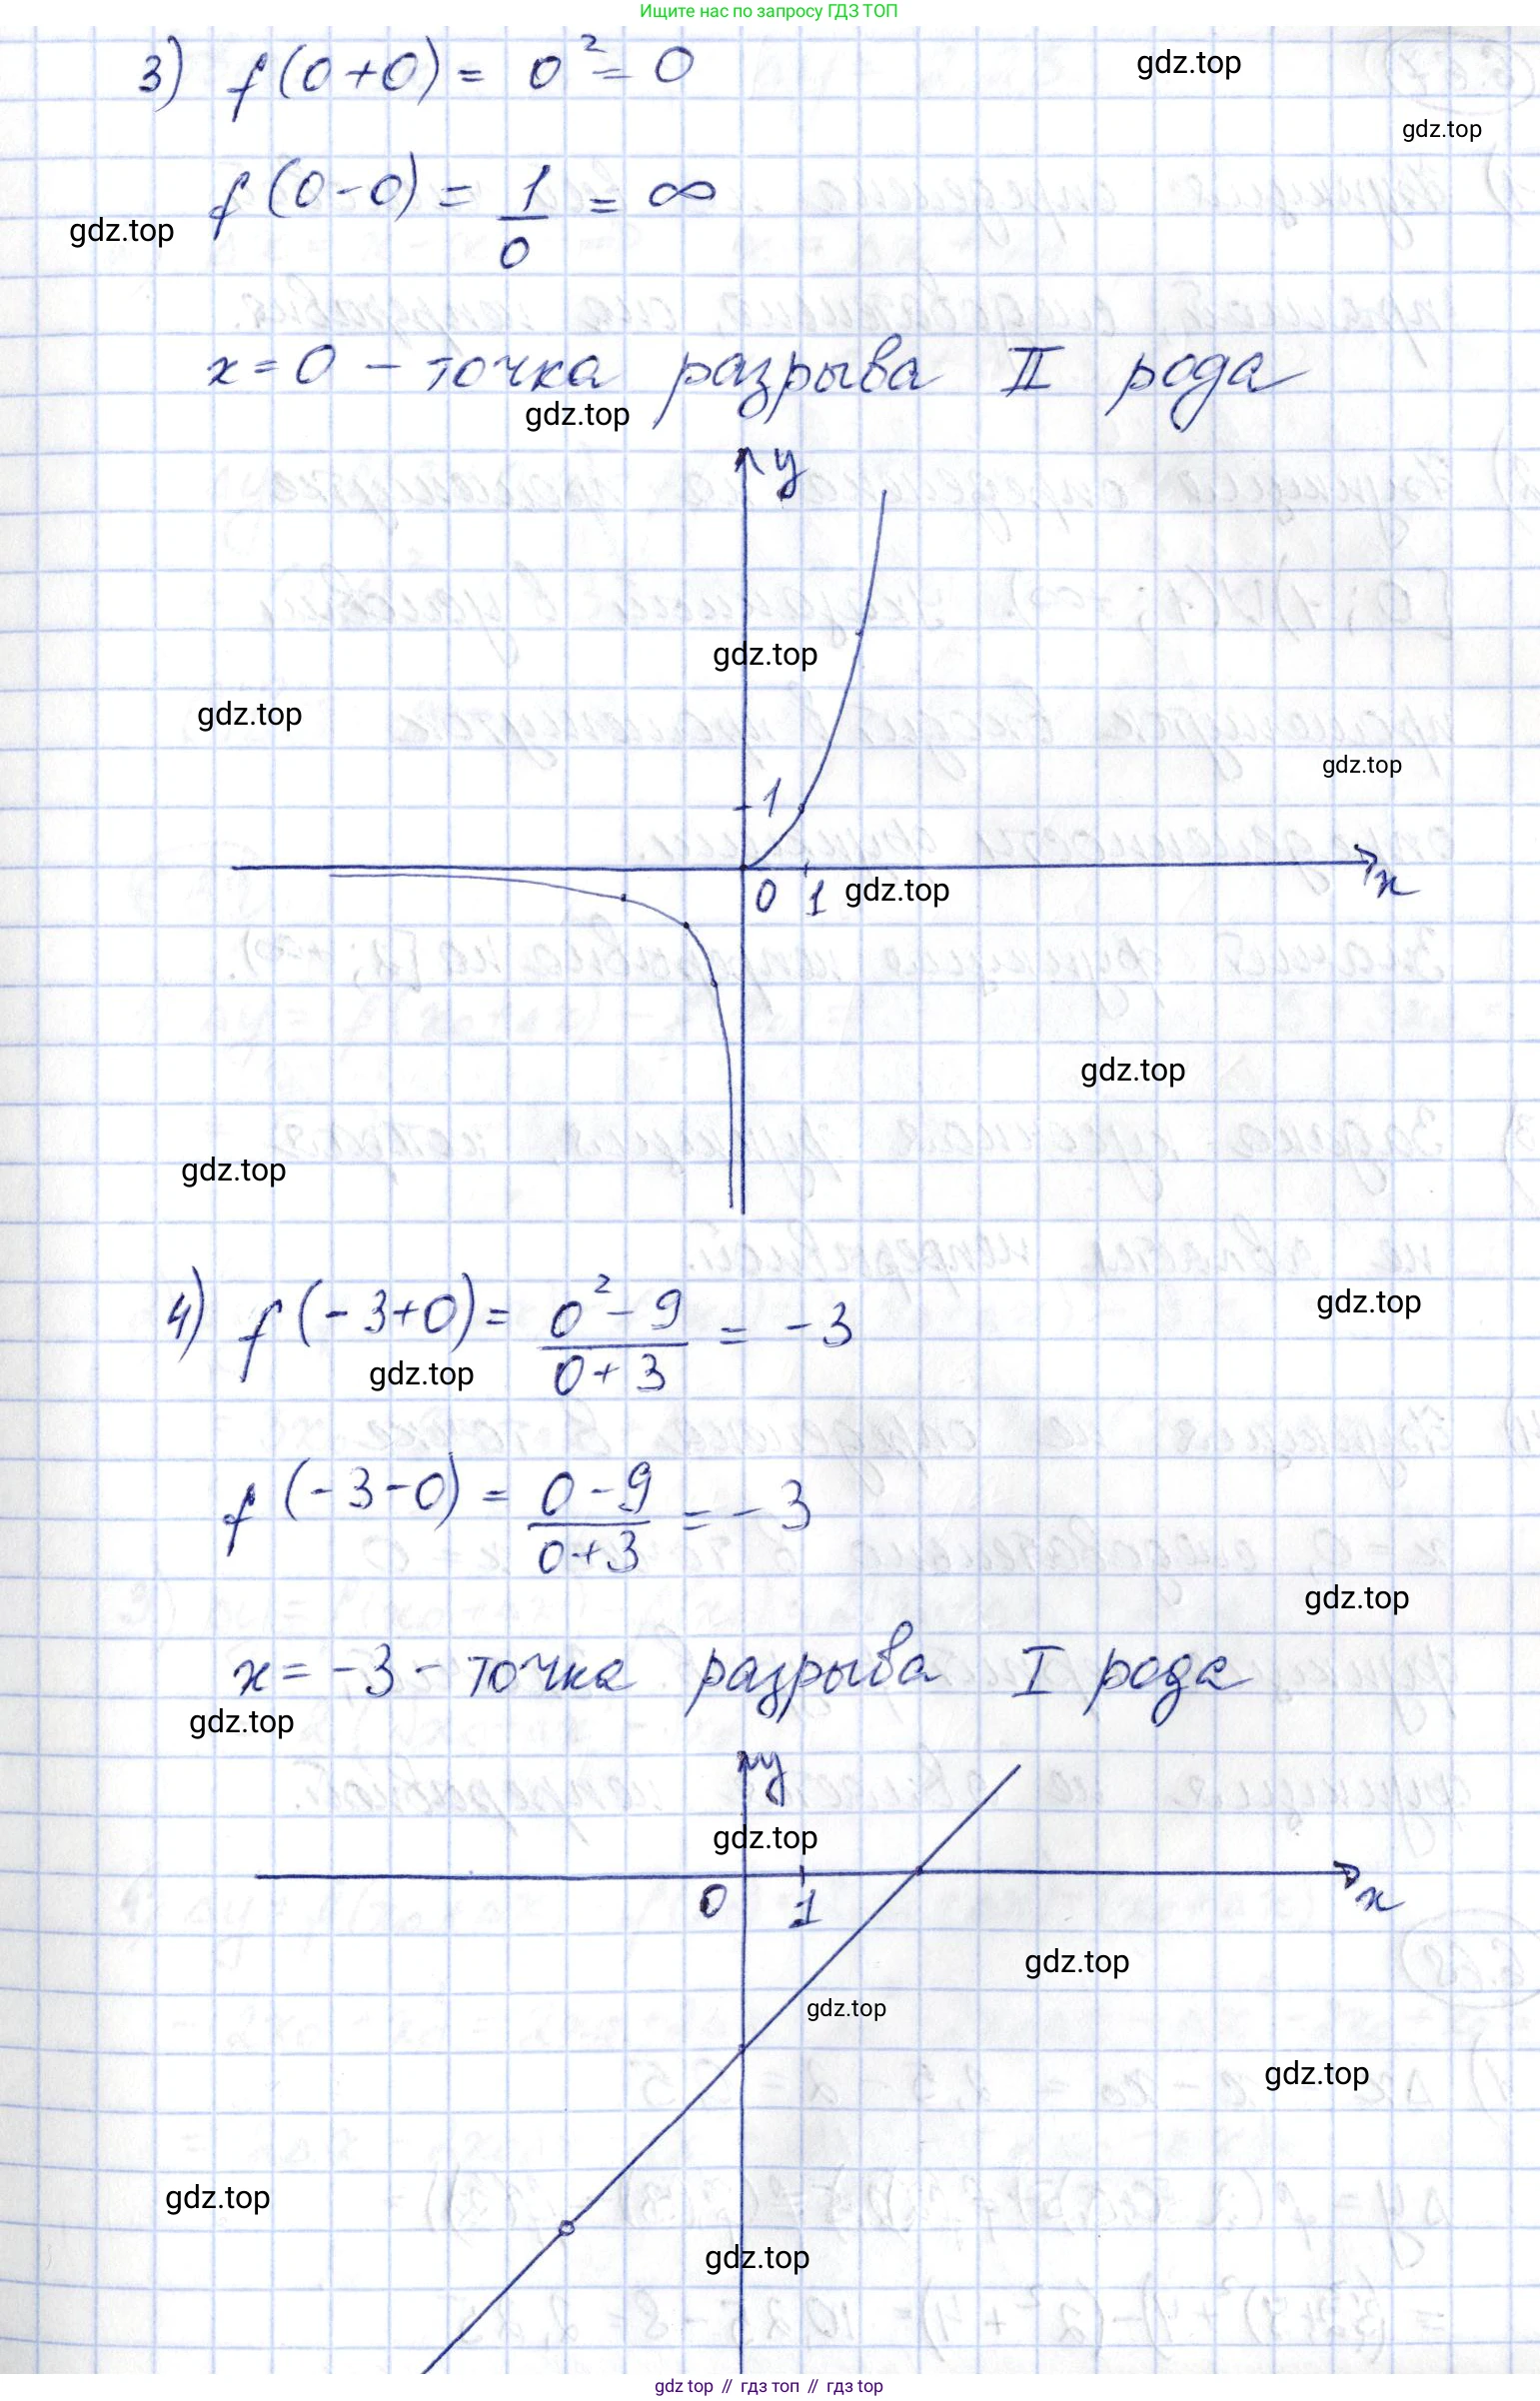 Ищите нас по запросу ГДЗ ТОП
3) f(0+0) = 0² = 0
gdz.top
gdz.top
f(0-0) = 1/0 = ∞
gdz.top
x=0 - точка разрыва II рода
gdz.top
y
gdz.top
gdz.top
gdz.top
1
0 1 gdz.top x
gdz.top
gdz.top
4) f(-3+0) = (0²-9)/(0+3) = -3
gdz.top
gdz.top
f(-3-0) = (0-9)/(0+3) = -3
gdz.top
x=-3 - точка разрыва I рода
gdz.top
y
gdz.top
0 1 x
gdz.top
gdz.top
gdz.top
gdz.top
gdz.top
gdz top // гдз топ // гдз top